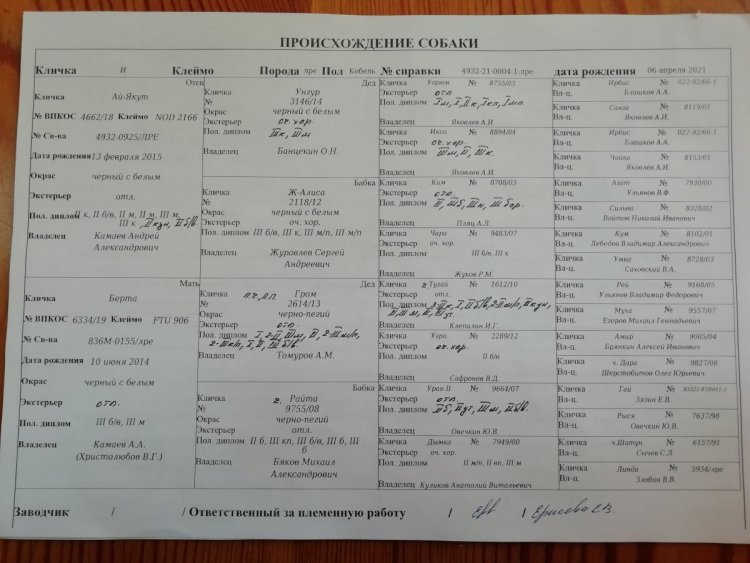 ПРОИСХОЖДЕНИЕ СОБАКИ
Кличка И Клеймо Порода лре Пол Кобель № справки 4932-21-0004-1-лре дата рождения 06 апреля 2021
Отец
Кличка Ай-Якут
№ ВПКОС 4662/18 Клеймо NOD 2166
№ Св-ва 4932-0925/ЛРЕ
Дата рождения 13 февраля 2015
Окрас черный с белым
Экстерьер отл.
Пол. диплом II к, II б/в, II м, II м, III м,
III к, II кун, II б/в
Владелец Камаев Андрей
Александрович
Мать
Кличка Берта
№ ВПКОС 6334/19 Клеймо FTU 906
№ Св-ва 836М-0155/лре
Дата рождения 10 июня 2014
Окрас черный с белым
Экстерьер отл.
Пол. диплом III б/в, III м
Владелец Камаев А.А.
(Христолюбов В.Г.)
Дед
Кличка Унгур
№ 3146/14
Окрас черный с белым
Экстерьер оч. хор.
Пол. диплом
III к, III м
Владелец Банцекин О.Н.
Бабка
Кличка Ж-Алиса
№ 2118/12
Окрас черный с белым
Экстерьер оч. хор.
Пол. диплом III б/в, III к, III м/п, III м/п
Владелец Журовлев Сергей
Андреевич
Дед
Кличка Гром
№ 2614/13
Окрас черно-пегий
Экстерьер отл.
Пол. диплом
Владелец Томуров А.М.
Бабка
Кличка ч. Райта
№ 9755/08
Окрас черно-пегий
Экстерьер отл.
Пол. диплом II б, III кп, III б/в, III б, III
б
Владелец Бяков Михаил
Александрович
Кличка Угром № 8755/03
Экстерьер отл.
Пол. диплом
Владелец Яковлев А.И.
Кличка Икса № 8894/04
Экстерьер оч. хор.
Пол. диплом III м, II, III к.
Владелец Яковлев А.И.
Кличка Ким № 8708/03
Экстерьер отл.
Пол. диплом II, III б, III к, III бар.
Владелец Плящ А.Л.
Кличка Чара № 9483/07
Экстерьер оч. хор.
Пол. диплом III б/в, III к
Владелец Жуков Р.М.
Кличка ч. Тугай № 1612/10
Экстерьер отл.
Пол. диплом
Владелец Клепилин И.Г.
Кличка Угра № 2289/12
Экстерьер оч. хор.
Пол. диплом II б/в
Владелец Сафронов В.Д.
Кличка Уран II № 9664/07
Экстерьер отл.
Пол. диплом
Владелец Овечкин Ю.В.
Кличка Дымка № 7949/00
Экстерьер оч. хор.
Пол. диплом II м/п, II вп, III м
Владелец Куликов Анатолий Витальевич
Кличка Ирбис № 022-92/66-1
Вл-ц. Блашков А.А.
Кличка Санга № 8119/01
Вл-ц. Яковлев А.И.
Кличка Ирбис № 022-92/66-1
Вл-ц. Блашков А.А.
Кличка Чайка № 8153/01
Вл-ц. Яковлев А.И.
Кличка Алат № 7930/00
Вл-ц. Ульянов В.Ф.
Кличка Сильва № 8328/02
Вл-ц. Войтов Николай Иванович
Кличка Кум № 8102/01
Вл-ц. Лебедев Владимир Александрович
Кличка Умка № 8728/03
Вл-ц. Саховский В.А.
Кличка Рей № 9168/05
Вл-ц. Ульянов Владимир Федорович
Кличка Муха № 9557/07
Вл-ц. Егоров Михаил Геннадьевич
Кличка Амир № 9005/04
Вл-ц. Брянкин Алексей Иванович
Кличка ч. Дара № 9827/08
Вл-ц. Шерстобитов Олег Юрьевич
Кличка Гай №
Вл-ц. Зязин Е.В.
Кличка Рыся № 7637/98
Вл-ц. Овечкин Ю.В.
Кличка ч.Шатун № 6157/91
Вл-ц. Сычев С.Л.
Кличка Линда № 5934/лре
Вл-ц. Злобин В.В.
Заводчик / / Ответственный за племенную работу / / Ерисова ЕВ